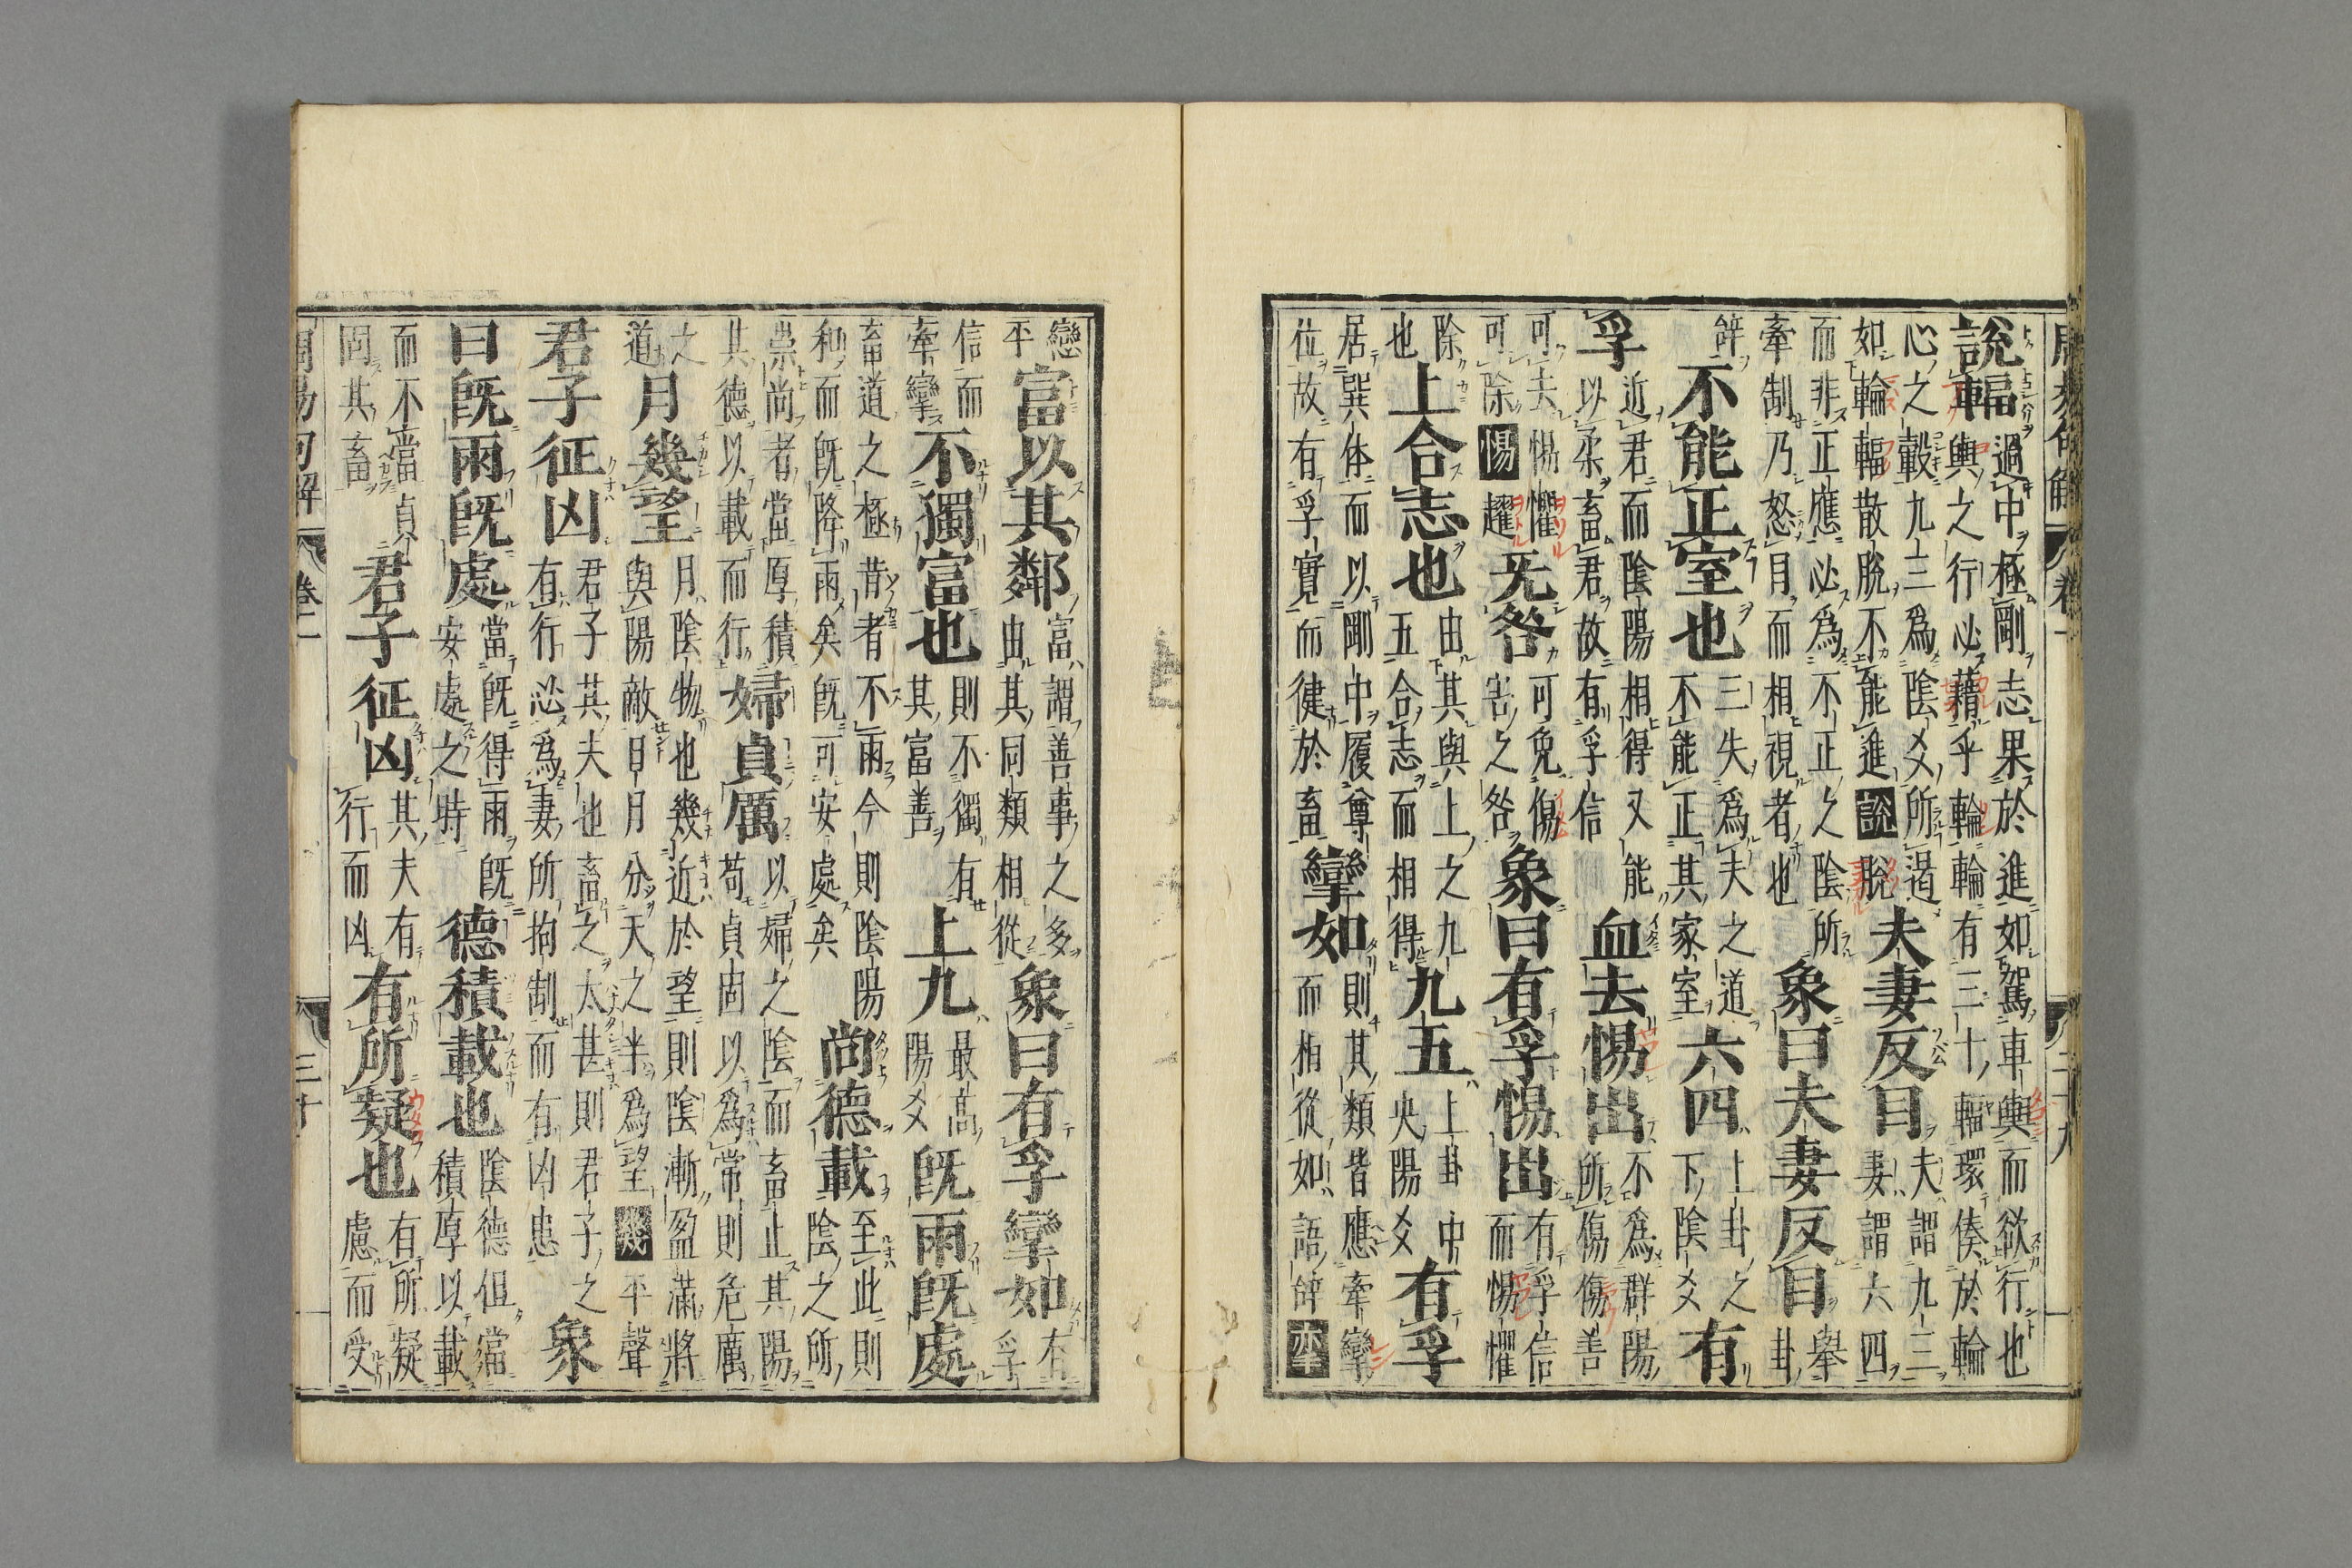 說輻
過中極剛志果於進如駕車輿而欲行也
輿之行必藉乎輪輪有三十輻環湊於輪
心之轂九三爲陰爻所遏
如輪輻散脫不能進說脫
夫妻反目
夫謂九三
妻謂六四
而非正應必爲不正之陰所
牽制乃怒目而相視者也
象曰夫妻反目
舉
卦
辭
不能正室也
三失爲夫之道
不能正其家室
六四
上卦之
下陰爻
有
孚
近君而陰陽相得又能
以柔畜君故有孚信
血去惕出
不爲群陽
所傷傷善
可去惕懼
可除惕趯
无咎
可免傷
害之咎
象曰有孚惕出
有孚信
而惕懼
除
也
上合志也
由其與上之九
五合志而相得
九五
上卦中
央陽爻
有孚
居巽体而以剛中履尊
位故有孚實而健於畜
攣如
則其類皆應牽攣
而相從如語辭
戀
平
富以其鄰
富謂善事之多
由其同類相從
象曰有孚攣如
有
孚
信而
牽攣
不獨富也
則不獨有
其富善
上九
最高
陽爻
旣雨旣處
畜道之極昔者不雨今則陰陽
和而旣降雨矣旣可安處矣
尚德載
至此則
陰之所
崇尚者當厚積
其德以載而行
婦貞厲
以婦之陰而畜止其陽
苟貞固以爲常則危厲
之
道
月幾望
月陰物也幾近於望則陰漸盈滿將
與陽敵日月分天之半爲望幾平聲
君子征凶
君子其夫也畜之太甚則君子之
有行必爲妻所拘制而有凶患
象
曰旣雨旣處
當旣得雨旣
安處之時
德積載也
陰德但當
積厚以載
而不當貞
固其畜
君子征凶
其夫有
行而凶
有所疑也
有所疑
慮而受
周易句解 卷二 三十